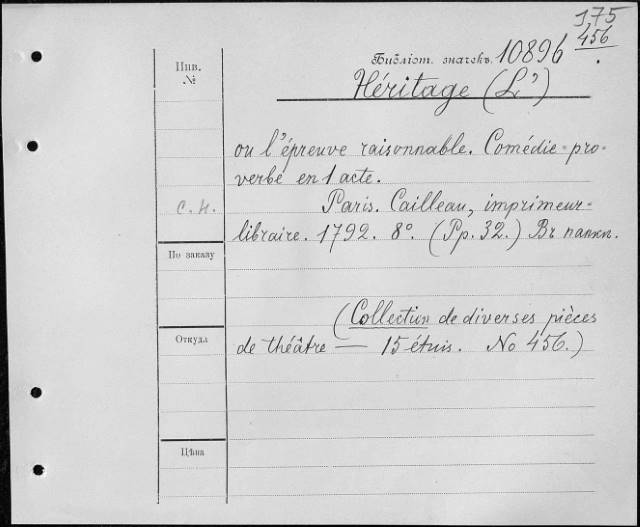 175
456
Инв.
№
Библіот. значекъ. 10896
Héritage (L')
ou l'épreuve raisonnable. Comédie-pro-
verbe en 1 acte.
С. Н.
Paris. Cailleau, imprimeur-
libraire. 1792. 8°. (Pp. 32.) Въ папкѣ.
По заказу
(Collection de diverses pièces
Откуда
de théâtre — 15 étuis. No 456.)
Цѣна